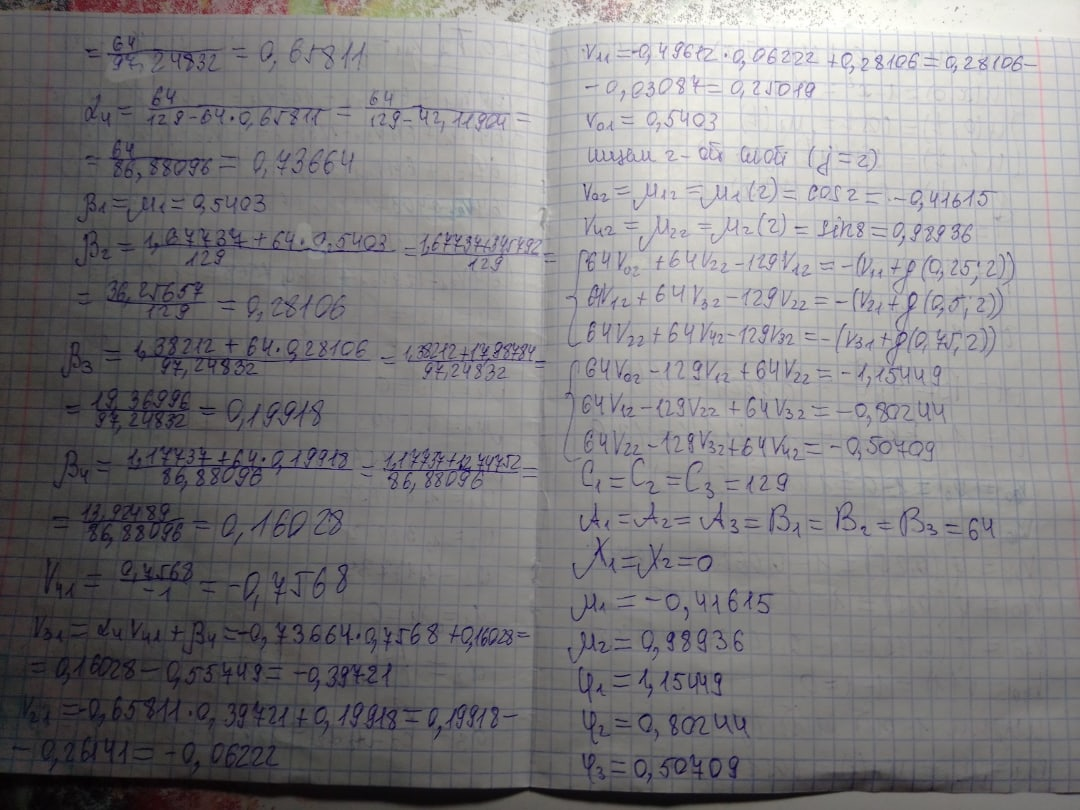 = 64/97,24832 = 0,65811
α₄ = 64/(129-64·0,65811) = 64/(129-42,11904) =
= 64/86,88096 = 0,73664
β₁ = μ₁ = 0,5403
β₂ = (1,67737+64·0,5403)/129 = (1,67737+34,5792)/129 =
= 36,25657/129 = 0,28106
β₃ = (1,38212+64·0,28106)/97,24832 = (1,38212+17,98784)/97,24832 =
= 19,36996/97,24832 = 0,19918
β₄ = (1,17737+64·0,19918)/86,88096 = (1,17737+12,74752)/86,88096 =
= 13,92489/86,88096 = 0,16028
V₄₁ = 0,7568/-1 = -0,7568
V₃₁ = α₄V₄₁+β₄ = -0,73664·0,7568+0,16028 =
= 0,16028-0,55749 = -0,39721
V₂₁ = -0,65811·0,39721+0,19918 = 0,19918-
- 0,26141 = -0,06222
V₁₁ = -0,49612·0,06222+0,28106 = 0,28106-
- 0,03087 = 0,25019
V₀₁ = 0,5403
ищем 2-ой слой (j=2)
V₀₂ = μ₁₂ = μ₁(2) = cos2 = -0,41615
V₄₂ = μ₂₂ = μ₂(2) = sin8 = 0,98936
64V₀₂+64V₂₂-129V₁₂ = -(V₁₁+g(0,25;2))
64V₁₂+64V₃₂-129V₂₂ = -(V₂₁+g(0,5;2))
64V₂₂+64V₄₂-129V₃₂ = -(V₃₁+g(0,75;2))
64V₀₂-129V₁₂+64V₂₂ = -1,15449
64V₁₂-129V₂₂+64V₃₂ = -0,80244
64V₂₂-129V₃₂+64V₄₂ = -0,50709
C₁=C₂=C₃=129
A₁=A₂=A₃=B₁=B₂=B₃=64
X₁=X₂=0
μ₁ = -0,41615
μ₂ = 0,98936
φ₁ = 1,15449
φ₂ = 0,80244
φ₃ = 0,50709